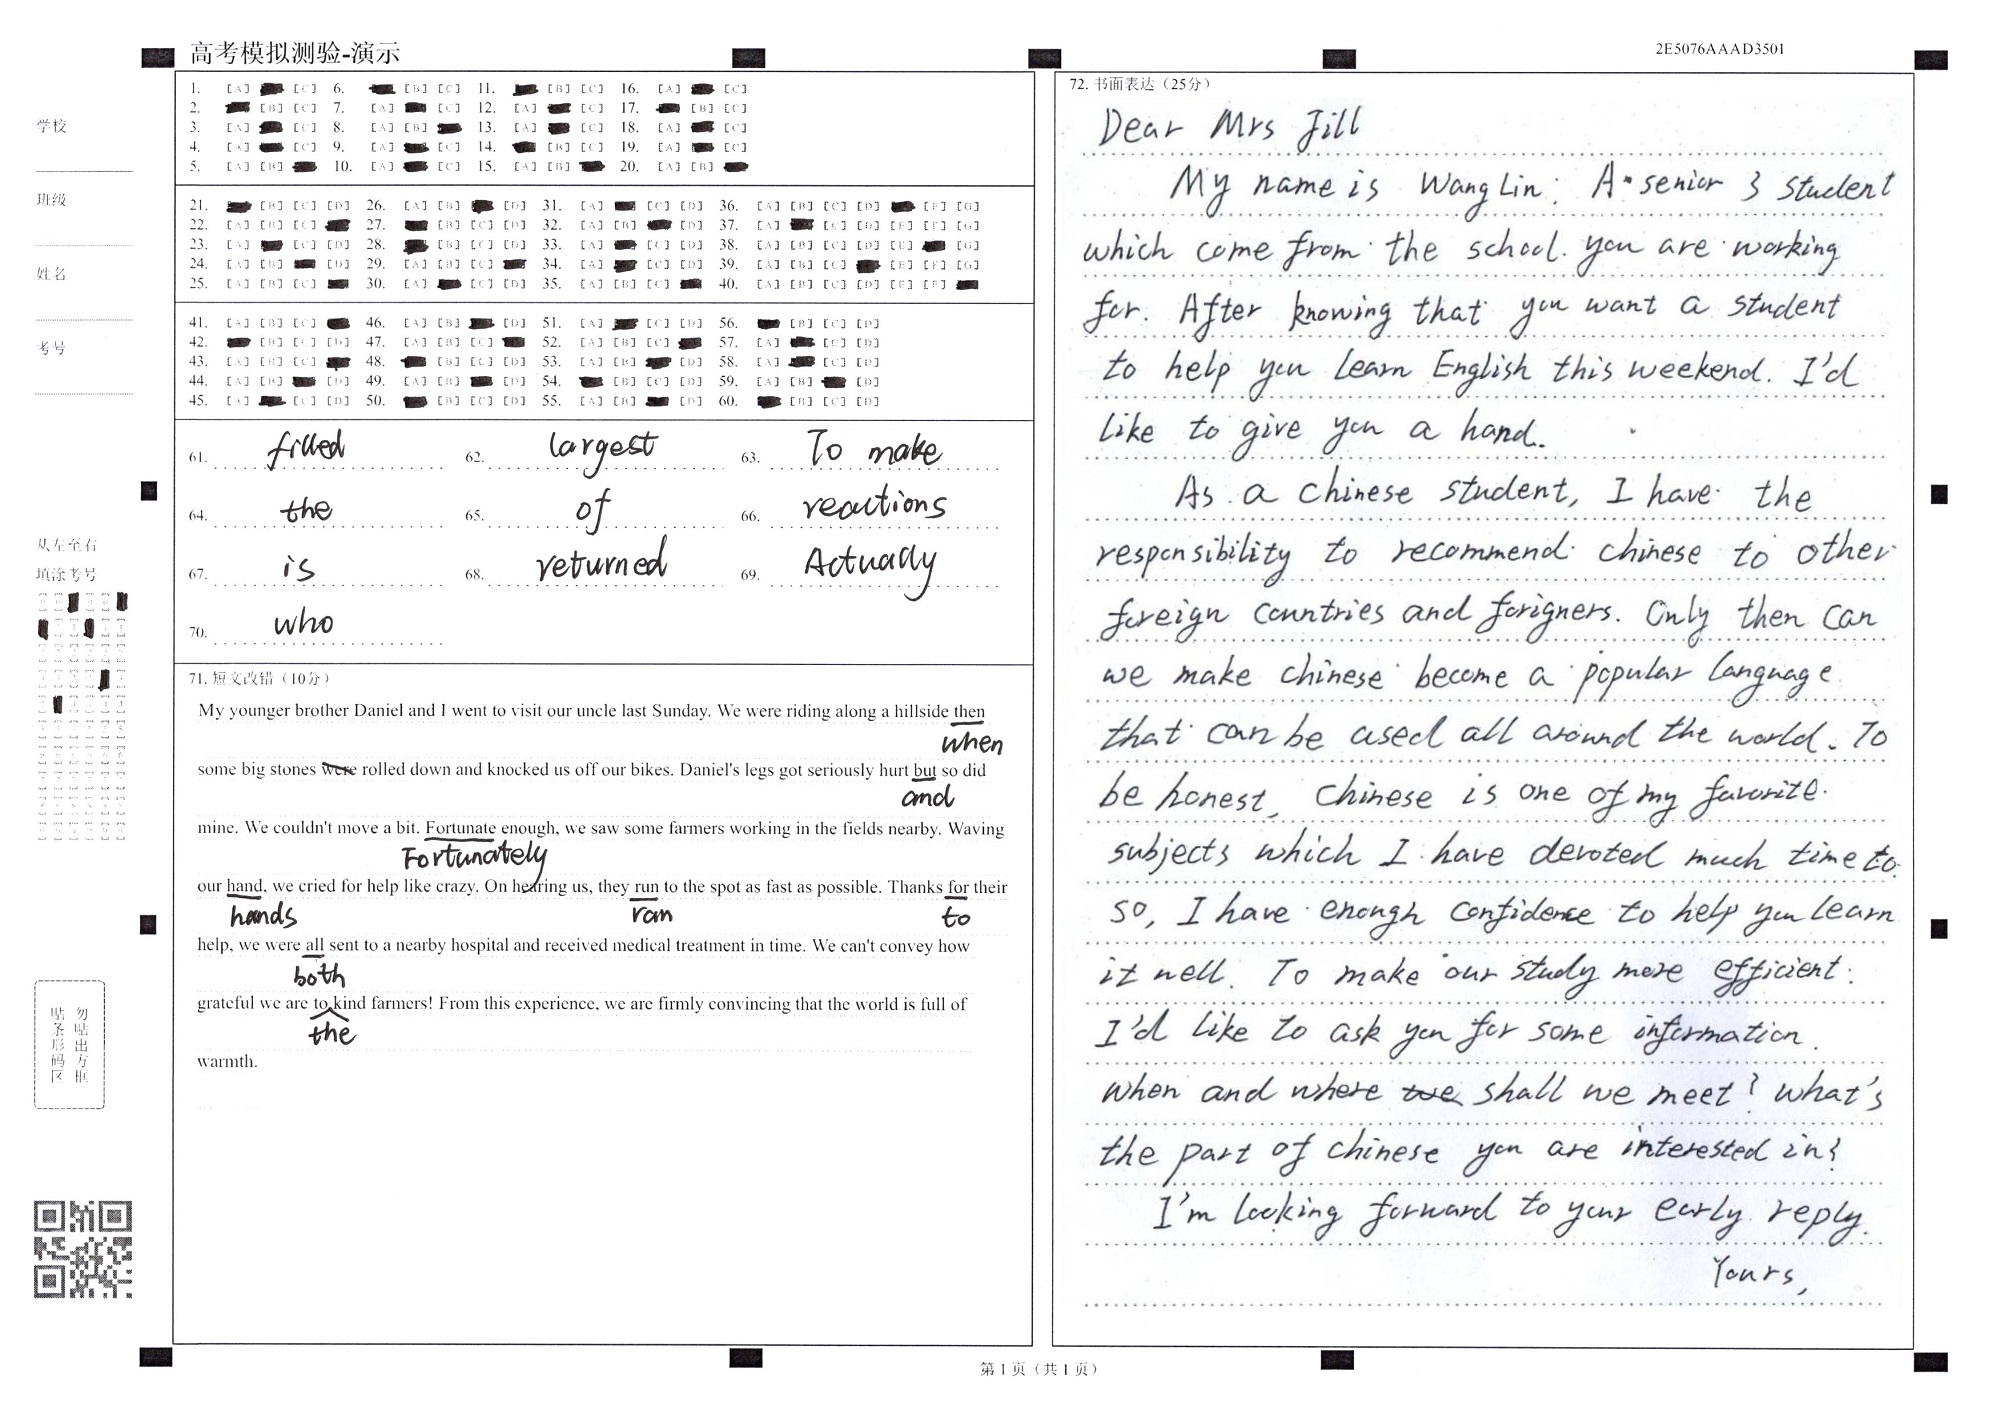 高考模拟测验-演示
2E5076AAAD3501
学校
班级
姓名
考号
从左至右
填涂考号
勿贴出方框
贴条形码区
1. [A] [C] 6. [B] [C] 11. [B] [C] 16. [A] [C]
2. [B] [C] 7. [A] [C] 12. [A] [C] 17. [B] [C]
3. [A] [C] 8. [A] [B] 13. [A] [C] 18. [A] [C]
4. [A] [C] 9. [A] [C] 14. [B] [C] 19. [A] [C]
5. [A] [B] 10. [A] [C] 15. [A] [B] 20. [A] [B]
21. [B] [C] [D] 26. [A] [B] [D] 31. [A] [C] [D] 36. [A] [B] [C] [D] [F] [G]
22. [A] [B] [C] 27. [B] [C] [D] 32. [A] [B] [D] 37. [A] [C] [D] [E] [F] [G]
23. [A] [C] [D] 28. [B] [C] [D] 33. [A] [C] [D] 38. [A] [B] [C] [D] [E] [G]
24. [A] [B] [D] 29. [A] [B] [C] 34. [A] [C] [D] 39. [A] [B] [C] [E] [F] [G]
25. [A] [B] [C] 30. [A] [C] [D] 35. [A] [B] [C] 40. [A] [B] [C] [D] [E] [F]
41. [A] [B] [C] 46. [A] [B] [D] 51. [A] [C] [D] 56. [B] [C] [D]
42. [B] [C] [D] 47. [A] [B] [C] 52. [A] [B] [C] 57. [A] [C] [D]
43. [A] [B] [C] 48. [B] [C] [D] 53. [A] [B] [D] 58. [A] [C] [D]
44. [A] [B] [D] 49. [A] [B] [D] 54. [B] [C] [D] 59. [A] [B] [D]
45. [A] [C] [D] 50. [B] [C] [D] 55. [A] [B] [D] 60. [B] [C] [D]
61. filled 62. largest 63. To make
64. the 65. of 66. reactions
67. is 68. returned 69. Actually
70. who
71. 短文改错（10分）
My younger brother Daniel and I went to visit our uncle last Sunday. We were riding along a hillside then
when
some big stones were rolled down and knocked us off our bikes. Daniel's legs got seriously hurt but so did
and
mine. We couldn't move a bit. Fortunate enough, we saw some farmers working in the fields nearby. Waving
Fortunately
our hand, we cried for help like crazy. On hearing us, they run to the spot as fast as possible. Thanks for their
hands ran to
help, we were all sent to a nearby hospital and received medical treatment in time. We can't convey how
both
grateful we are to kind farmers! From this experience, we are firmly convincing that the world is full of
the
warmth.
72. 书面表达（25分）
Dear Mrs Jill
My name is Wang Lin. A senior 3 student
which come from the school. you are working
for. After knowing that you want a student
to help you learn English this weekend. I'd
like to give you a hand.
As a chinese student, I have the
responsibility to recommend chinese to other
foreign countries and forigners. Only then can
we make chinese become a popular language
that can be used all around the world. To
be honest, chinese is one of my favorite
subjects which I have devoted much time to.
so, I have enough confidence to help you learn
it well. To make our study more efficient.
I'd like to ask you for some information.
when and where we shall we meet? what's
the part of chinese you are interested in?
I'm looking forward to your early reply.
Yours,
第 1 页（共 1 页）